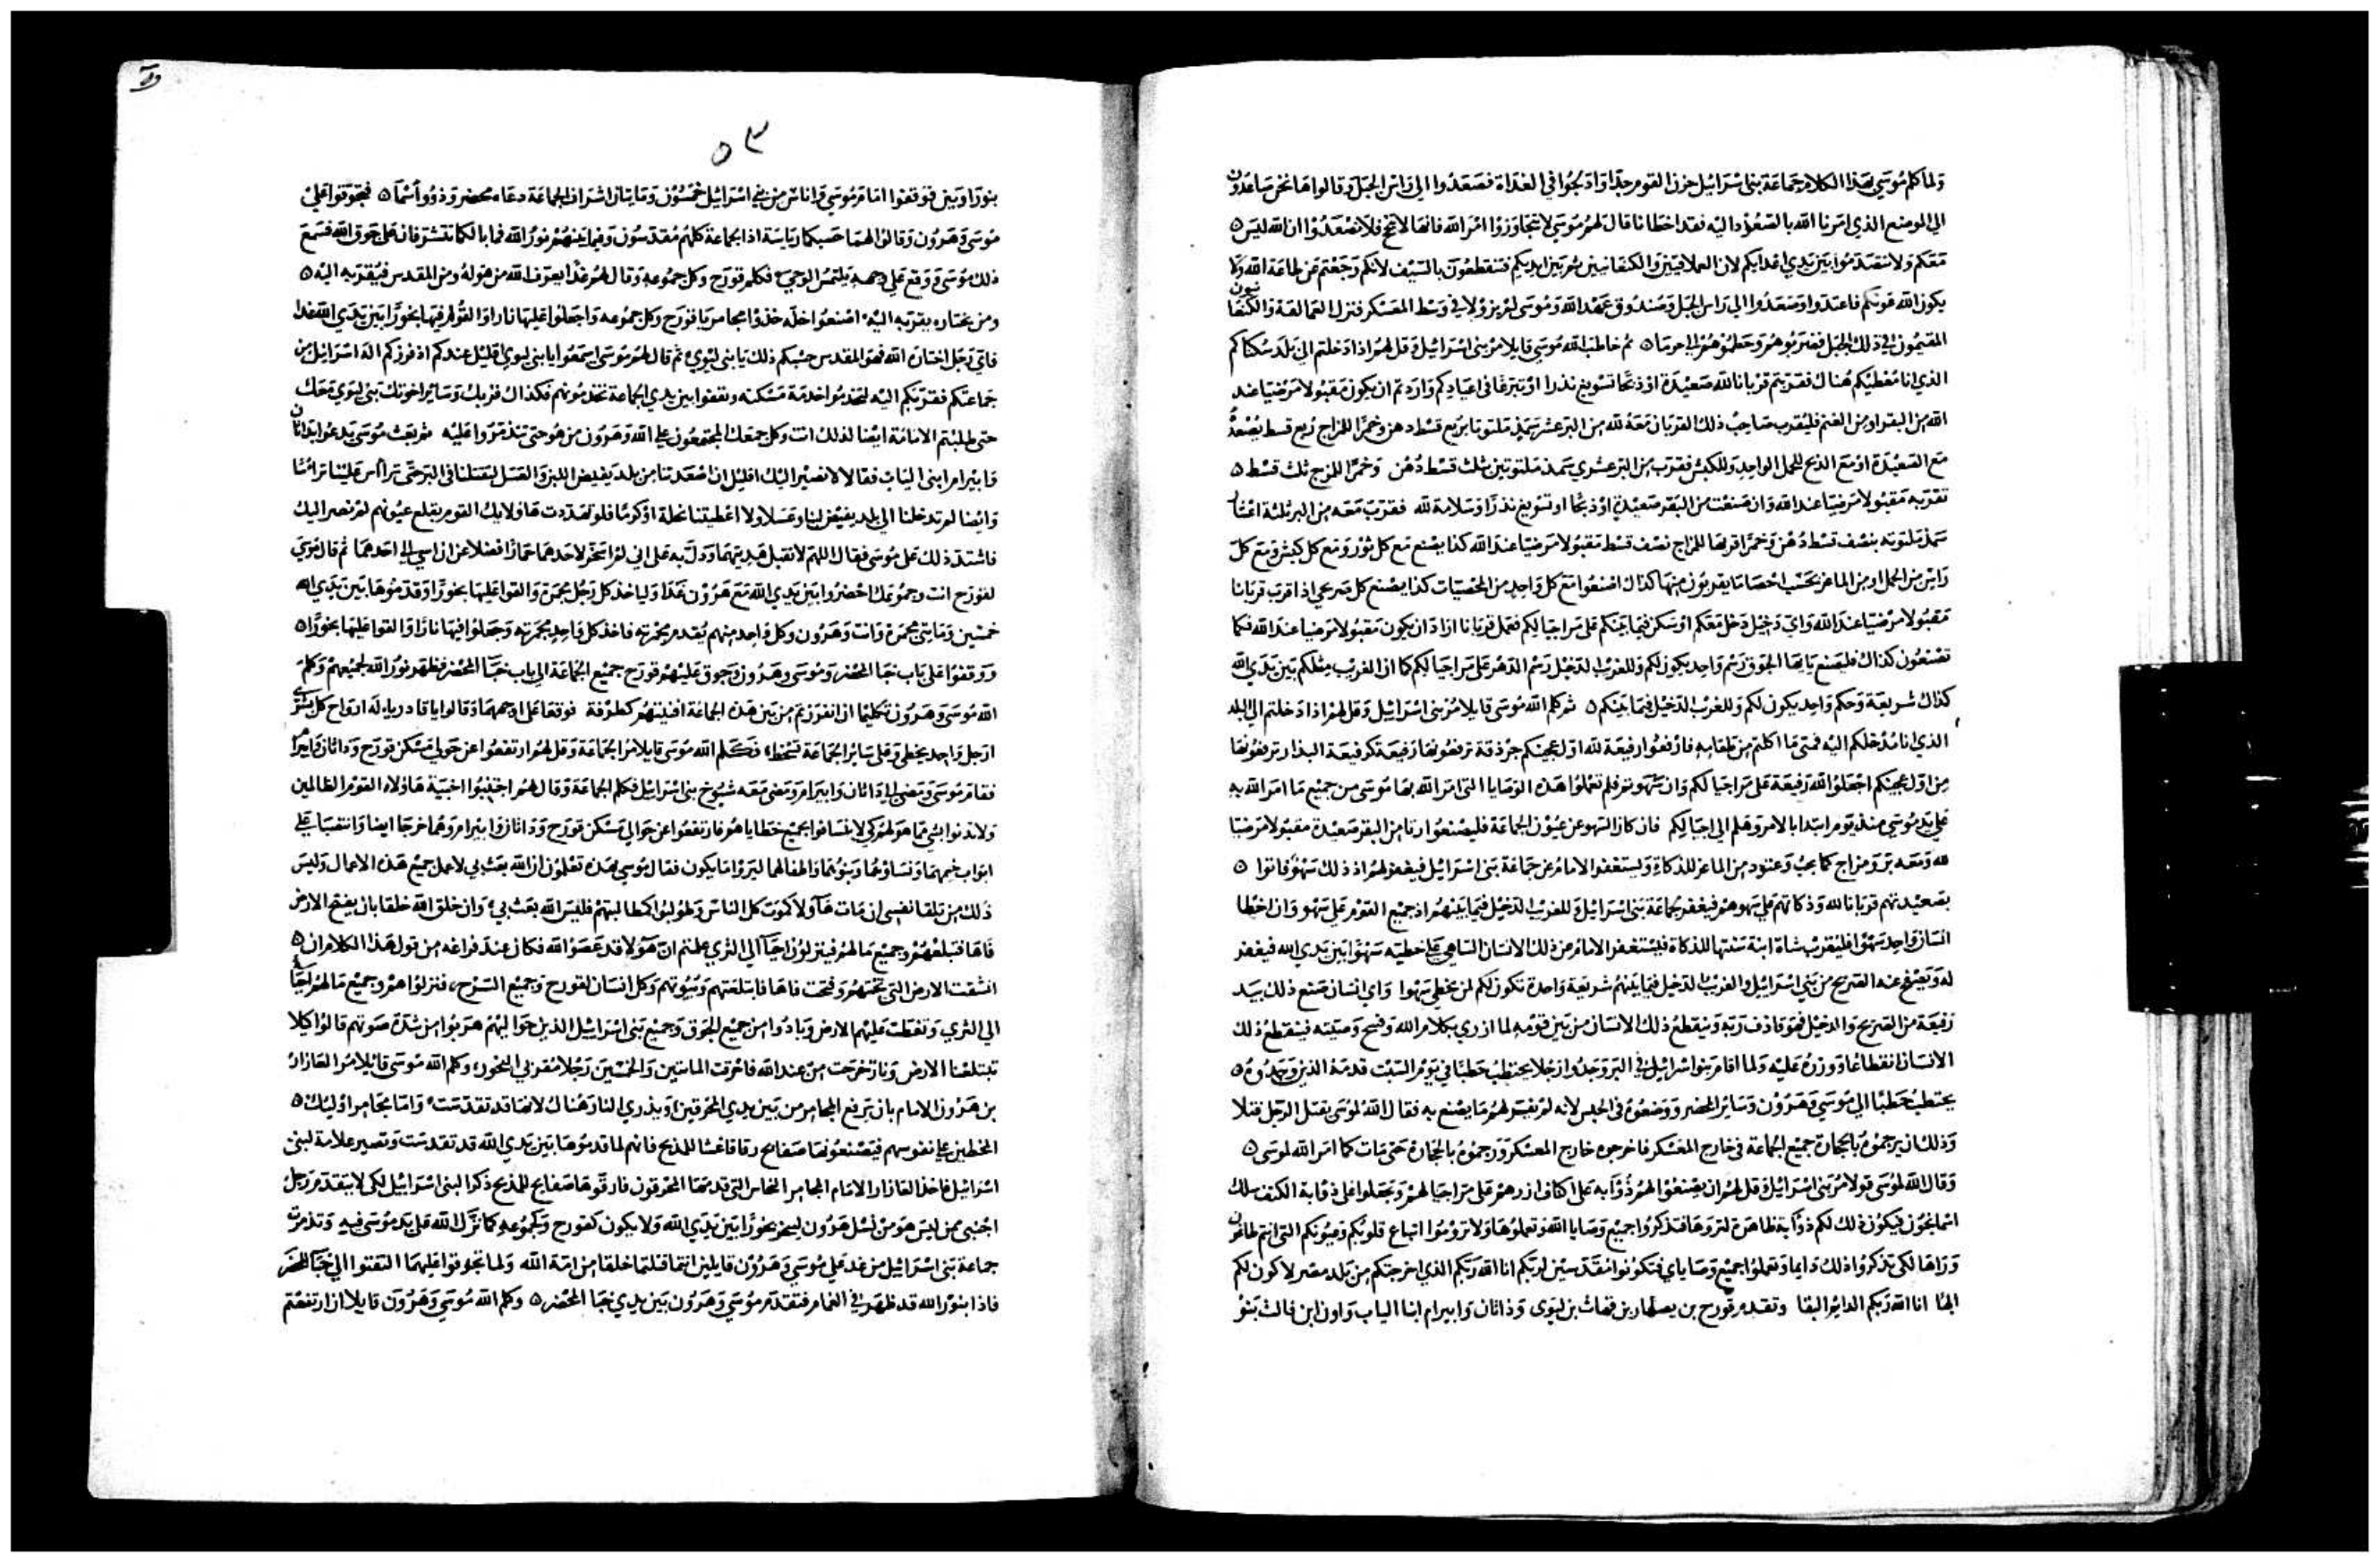 ولما كلم موسى بهذا الكلام جماعة بنى اسرائيل حزن القوم جدا وادلجوا في الغداة فصعدوا الى راس الجبل وقالوا ها نحن صاعدون
الى الموضع الذي امرنا الله بالصعود اليه فقد اخطانا قال لهم موسى لا تتجاوزوا امر الله فانها لا تنجح فلا تصعدوا ان الله ليس
معكم ولا تتقدموا بين يدي اعدايكم لان العملاقيين والكنعانيين ثم بين ايديكم فتنقطعون بالسيف لانكم رجعتم عن طاعة الله ولا
يكون الله عونكم فاعتدوا وصعدوا الى راس الجبل وصندوق عهد الله وموسى لم يزولا في وسط المعسكر فنزل العمالقة والكنعانيون
المقيمون في ذلك الجبل فضربوهم وحطموهم الى حرما ثم خاطب الله موسى قايلا مر بنى اسرائيل وقل لهم اذا دخلتم الى بلد سكناكم
الذي انا معطيكم هناك فقربتم قربانا لله صعيدة او ذبحا تسويغ نذرا او تبرعا في اعيادكم واردتم ان يكون مقبولا مرضيا عند
الله من البقر او من الغنم فليقرب صاحب ذلك القربان معه لله من البر عشر سميذ ملتوتا بربع قسط دهن وخمرا للمزاج ربع قسط يصنعه
مع الصعيدة او مع الذبح للحمل الواحد وللكبش فقرب من البر عشري سميذ ملتوتين بثلث قسط دهن وخمرا للمزج ثلث قسط
تقربه مقبولا مرضيا عند الله وان صنعت من البقر صعيدة او ذبحا او تسويغ نذرا وسلامة لله فقرب معه من البر ثلثة اعشار
سميذ ملتوته بنصف قسط دهن وخمرا قربها للمزاج نصف قسط مقبولا مرضيا عند الله كذا يصنع مع كل ثور ومع كل كبش ومع كل
راس من الحمل او من الماعز بحسب احصا ما يقربون منها كذاك اصنعوا مع كل واحد من المحصيات كذا يصنع كل صريحى اذا قرب قربانا
مقبولا مرضيا عند الله واي دخيل دخل معكم او سكن فيما بينكم على مر اجيالكم فعمل قربانا اراد ان يكون مقبولا مرضيا عند الله فكما
تصنعون كذاك فليصنع يايها الجوق رسم واحد يكون لكم وللغريب الدخيل رسم الدهر على مر اجيالكم كما ان الغريب مثلكم بين يدي الله
كذاك شريعة وحكم واحد يكون لكم وللغريب الدخيل فيما بينكم ثم كلم الله موسى قايلا مر بنى اسرائيل وقل لهم اذا دخلتم الى البلد
الذي انا مدخلكم اليه فمتى ما اكلتم من طعامه فارفعوا رفيعة لله اول عجينكم جردقة ترفعونها رفيعة كرفيعة البذار ترفعونها
من اول عجينكم اجعلوا لله رفيعة على مر اجيالكم وان سهوتم فلم تعملوا هذه الوصايا التى امر الله بها موسى من جميع ما امر الله به
على يد موسى منذ يوم ابتدا بالامر وهلم الى اجيالكم فان كان السهو عن عيون الجماعة فليصنعوا رتا من البقر صعيدة مقبولا مرضيا
لله ومعه بر ومزاج كما يجب وعتود من الماعز للذكاة ويستغفر الامام عن جماعة بنى اسرائيل فيغفر لهم اذ ذلك سهو فاتوا
بصعيدتهم قربانا لله وذكاتهم على سهوهم فيغفر لجماعة بنى اسرائيل وللغريب الدخيل فيما بينهم اذ جميع القوم على سهو وان اخطا
انسان واحد سهوا فليقرب شاة ابنة سنتها للذكاة فليستغفر الامام عن ذلك الانسان الساهي على خطيته سهوا بين يدي الله فيغفر
له ويصفح عنه الصريح من بني اسرائيل والغريب الدخيل فيما بينهم شريعة واحدة تكون لكم لمن يخطي سهوا واي انسان صنع ذلك بيد
رفيعة من الصريح والدخيل فهو قاذف ربه وينقطع ذلك الانسان من بين قومه لما ازري بكلام الله وفسخ وصيته فينقطع ذلك
الانسان انقطاعا ووزره عليه ولما اقام بنو اسرائيل في البر وجدوا رجلا يحتطب حطبا في يوم السبت قدمه الذين وجدوه
يحتطب حطبا الى موسى وهرون وساير المحضر ووضعوه في الحبس لانه لم يفسر لهم ما يصنع به فقال الله لموسى يقتل الرجل قتلا
وذلك ان يرجموه بالحجارة جميع الجماعة في خارج المعسكر فاخرجوه خارج المعسكر ورجموه بالحجارة حتى مات كما امر الله لموسى
وقال الله لموسى قولا مر بنى اسرائيل وقل لهم ان يصنعوا لهم ذوابه على اكتاف ازرهم على مر اجيالهم ويجعلوا على ذوابة الكنف سلك
اسمانجون فيكون ذلك لكم ذوابة ظاهرة لتروها فتذكروا جميع وصايا الله وتعملوها ولا تروموا اتباع قلوبكم وعيونكم التى انتم طاغون
وراها لكى تذكروا ذلك دايما وتعملوا جميع وصاياي فتكونوا مقدسين لربكم انا الله ربكم الذي اخرجتكم من بلد مصر لاكون لكم
الها انا الله ربكم الدايم البقا وتقدم قورح بن يصهار بن قهاث بن ليوى وداثان وابيرام ابنا الياب واون ابن فالث بنو
٥٣
بنو راوبين فوقفوا امام موسى واناس من بنى اسرائيل خمسون ومايتان اشراف الجماعة دعاء محضر وذووا اسما فتجوقوا على
موسى وهرون وقالوا لهما حسبكما رياسة اذ الجماعة كلهم مقدسون وفيما بينهم نور الله فما بالكما تتشرفان على جوق الله فسمع
ذلك موسى ووقع على وجهه يلتمس الوحي فكلم قورح وكل جموعه وقال لهم غدا يعرف الله من هو له ومن المقدس فيقربه اليه
ومن يختاره يقربه اليه اصنعوا خلة خذوا مجامر يا قورح وكل جموعه واجعلوا عليها نارا والقوا فيها بخورا بين يدي الله غدا
فاي رجل اختاره الله فهو المقدس حسبكم ذلك يا بنى ليوي ثم قال لهم موسى اسمعوا يا بنى ليوي اقليل عندكم اذ فرزكم اله اسرائيل من
جماعتكم فقربكم اليه لتخدموا خدمة مسكنه وتقفوا بين يدي الجماعة تخدمونهم فكذاك قربك وساير اخوتك بنى ليوي معك
حتى طلبتم الامامة ايضا لذلك انت وكل جمعك المجتمعون على الله وهرون من هو حتى تتذمروا عليه ثم بعث موسى يدعوا بداثان
وابيرام ابنى الياب فقالا لا نصير اليك اقليل ان اصعدتنا من بلد يفيض اللبن والعسل لتقتلنا في البر حتى تراس علينا تراسا
وايضا لم تدخلنا الى بلد يفيض لبنا وعسلا ولا اعطيتنا نحلة او كرما فلو تهددت هاولايك القوم بقلع عيونهم لم نصر اليك
فاشتد ذلك على موسى فقال اللهم لا تقبل هديتهما ودل به على انى لم اسخر لاحدهما حمارا فضلا عن ان اسي الى احدهما ثم قال موسى
لقورح انت وجموعك احضروا بين يدي الله مع هرون غدا ولياخذ كل رجل مجمره والقوا عليها بخورا وقدموها بين يدي الله
خمسين ومايتى مجمرة وانت وهرون وكل واحد منهم يقدم مجمرته فاخذ كل واحد مجمرته وجعلوا فيها نارا والقوا عليها بخورا
ووقفوا على باب خبا المحضر وموسى وهرون وجوق عليهم قورح جميع الجماعة الى باب خبا المحضر فظهر نور الله لجميعهم وكلم
الله موسى وهرون تكليما ان انفرزتم من بين هذه الجماعة افنيتهم كطرفة فوقعا على اوجههما وقالوا يا قادر يا اله ارواح كل بشري
ارجل واحد يخطى وعلى ساير الجماعة تسخط فكلم الله موسى قايلا مر الجماعة وقل لهم ارتفعوا عن حوالى مسكن قورح وداثان وابيرام
فقام موسى ومضى الى داثان وابيرام ومضى معه شيوخ بنى اسرائيل فكلم الجماعة وقال لهم اجتنبوا اخبية هاولاء القوم الظالمين
ولا تدنوا بشى مما هو لهم كى لا تنسافوا بجميع خطاياهم فارتفعوا عن حوالى مسكن قورح وداثان وابيرام وهما خرجا ايضا وانتصبا على
ابواب خيمهما ونساوهما وبنوهما واطفالهما ليروا ما يكون فقال موسى بهذه تعلمون ان الله بعث بي لاعمل جميع هذه الاعمال وليس
ذلك من تلقا نفسى ان مات هاولا كموت كل الناس وطولبوا كمطالبتهم فليس الله بعث بي وان خلق الله خلقا بان يفتح الارض
فاها فتبلعهم وجميع مالهم فينزلون احيا الى الثري علمتم ان هولا قد عصوا الله فكان عند فراغه من قول هذا الكلام ان
انشقت الارض التى تحتهم وفتحت فاها فابتلعتهم وبيوتهم وكل انسان لقورح وجميع السرح، فنزلوا هم وجميع ما لهم احياء
الى الثري وتغطت عليهم الارض وبادوا من جميع الجوق وجميع بنى اسرائيل الذين حواليهم هربوا من شدة صوتهم قالوا كيلا
تبتلعنا الارض ونار خرجت من عند الله فاحرقت المائتين والخمسين رجلا مقربى البخور وكلم الله موسى قايلا مر العازار
بن هرون الامام بان يرفع المجامر من بين يدي المحرقين ويذري النار هناك لانها قد تقدست واما مجامر اوليك
المخطين على نفوسهم فيصنعونها صفايح رقاقا غشا للمذبح فانهم لما قدموها بين يدي الله قد تقدست وتصير علامة لبنى
اسرائيل فاخذ العازار الامام المجامر النحاس التى قدمها المحرقون فارقوها صفايح للمذبح ذكرا لبنى اسرائيل لكى لا يتقدم رجل
اجنبى ممن ليس هو من نسل هرون ليبخر بخورا بين يدي الله ولا يكون كقورح وكجموعه كما نزل الله على يد موسى فيه وتذمرت
جماعة بنى اسرائيل من غد على موسى وهرون قايلين انتما قتلتما خلقا من امة الله ولما تجوقوا عليهما التفتوا الى خبا المحضر
فاذا بنور الله قد ظهر في الغمام فتقدم موسى وهرون بين يدي خبا المحضر وكلم الله موسى وهرون قايلا ان ارتفعتم